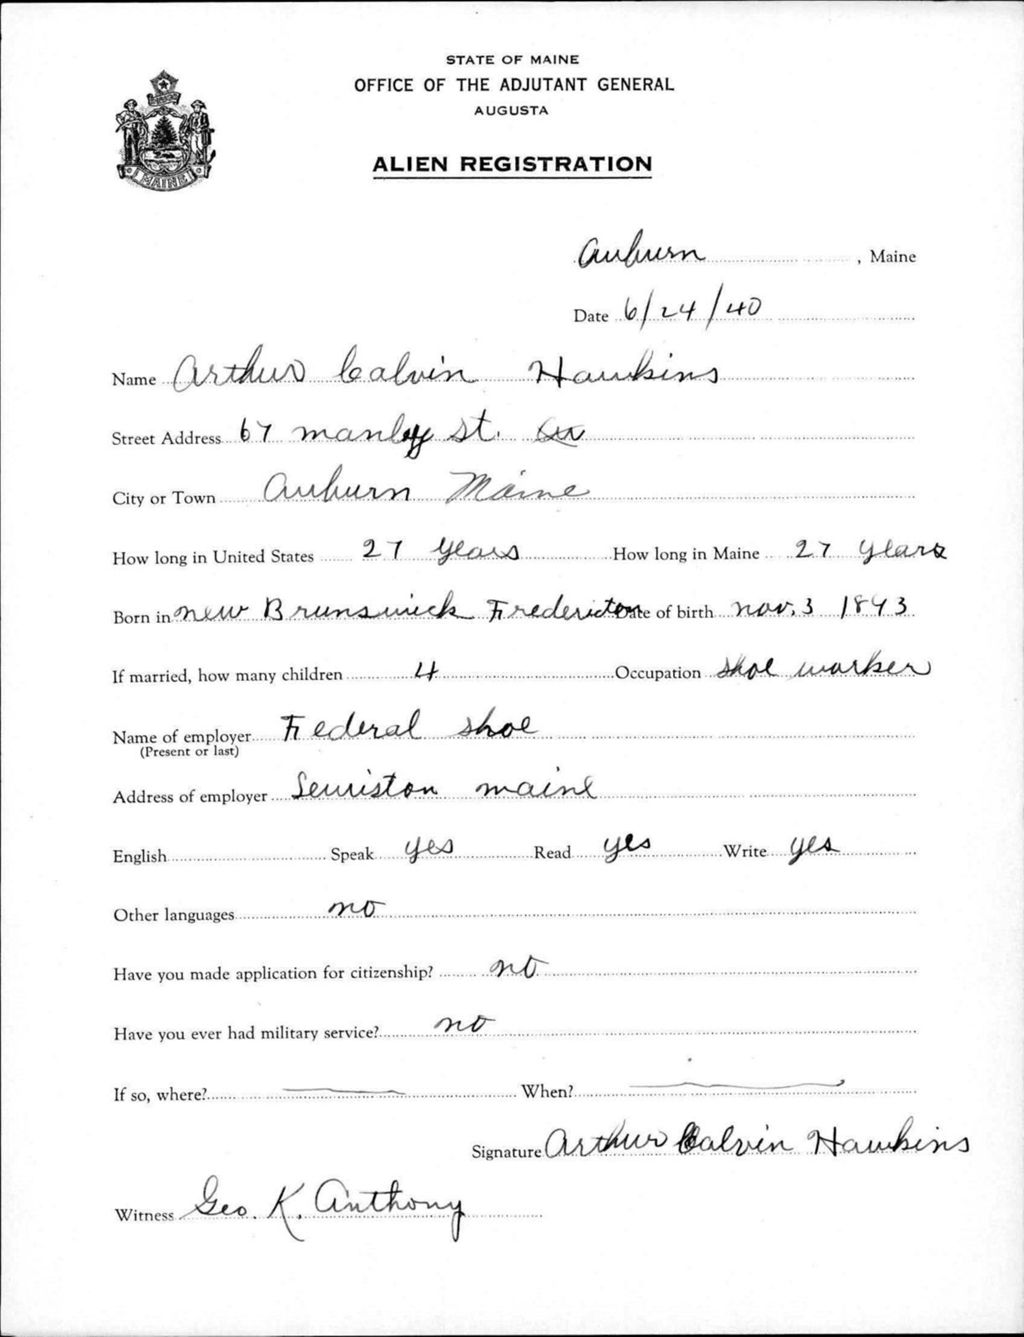 STATE OF MAINE
OFFICE OF THE ADJUTANT GENERAL
AUGUSTA
ALIEN REGISTRATION
MAINE
Auburn, Maine
Date 6/24/40
Name Arthur Calvin Hawkins
Street Address 67 Manley St.
City or Town Auburn Maine
How long in United States 27 years How long in Maine 27 years
Born in New Brunswick Fredericton Date of birth Nov. 3 1893
If married, how many children 4 Occupation Shoe worker
Name of employer Federal Shoe
(Present or last)
Address of employer Lewiston Maine
English Speak yes Read yes Write yes
Other languages no
Have you made application for citizenship? no
Have you ever had military service? no
If so, where? When?
Signature Arthur Calvin Hawkins
Witness Geo. K. Anthony